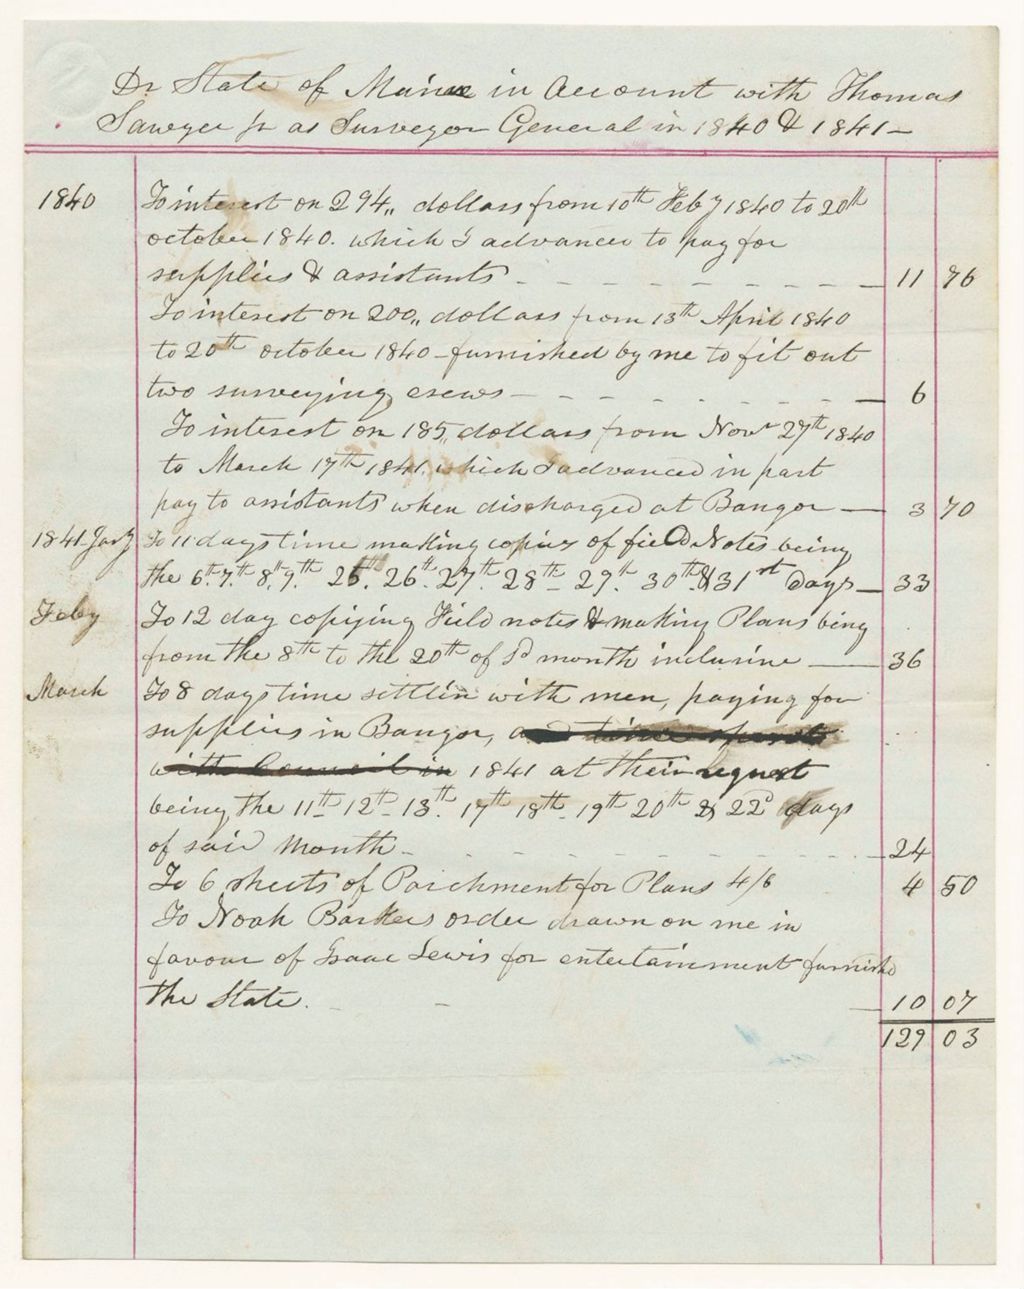 Dr State of Maine in Account with Thomas
Sawyer jr as Surveyor General in 1840 & 1841-
1840 To interest on 294,, dollars from 10th Feby 1840 to 20th
october 1840. which I advanced to pay for
supplies & assistants - - - - - - - - - 11 76
To interest on 200,, dollars from 13th April 1840
to 20th october 1840 - furnished by me to fit out
two surveying crews - - - - - - - - 6
To interest on 185,, dollars from Novr 27th 1840
to March 17th 1841, which I advanced in part
pay to assistants when discharged at Bangor - 3 70
1841 Jany To 11 days time making copies of field Notes being
the 6th. 7th. 8th, 9th. 25th. 26th. 27th. 28th - 29th. 30th. & 31st days - 33
Feby To 12 day copiying Field notes & making Plans being
from the 8th to the 20th of Sd month inclusive - 36
March To 8 days time settlin with men, paying for
supplies in Bangor, and time spent
with Council in 1841 at their request
being the 11th 12th - 13th. 17th 18th - 19th 20th & 22d days
of said Month - - - - - - - - - 24
To 6 sheets of Parchment for Plans 4/6 4 50
To Noah Barkers order drawn on me in
favour of Isaac Lewis for entertainment furnishd
the State. - - 10 07
129 03